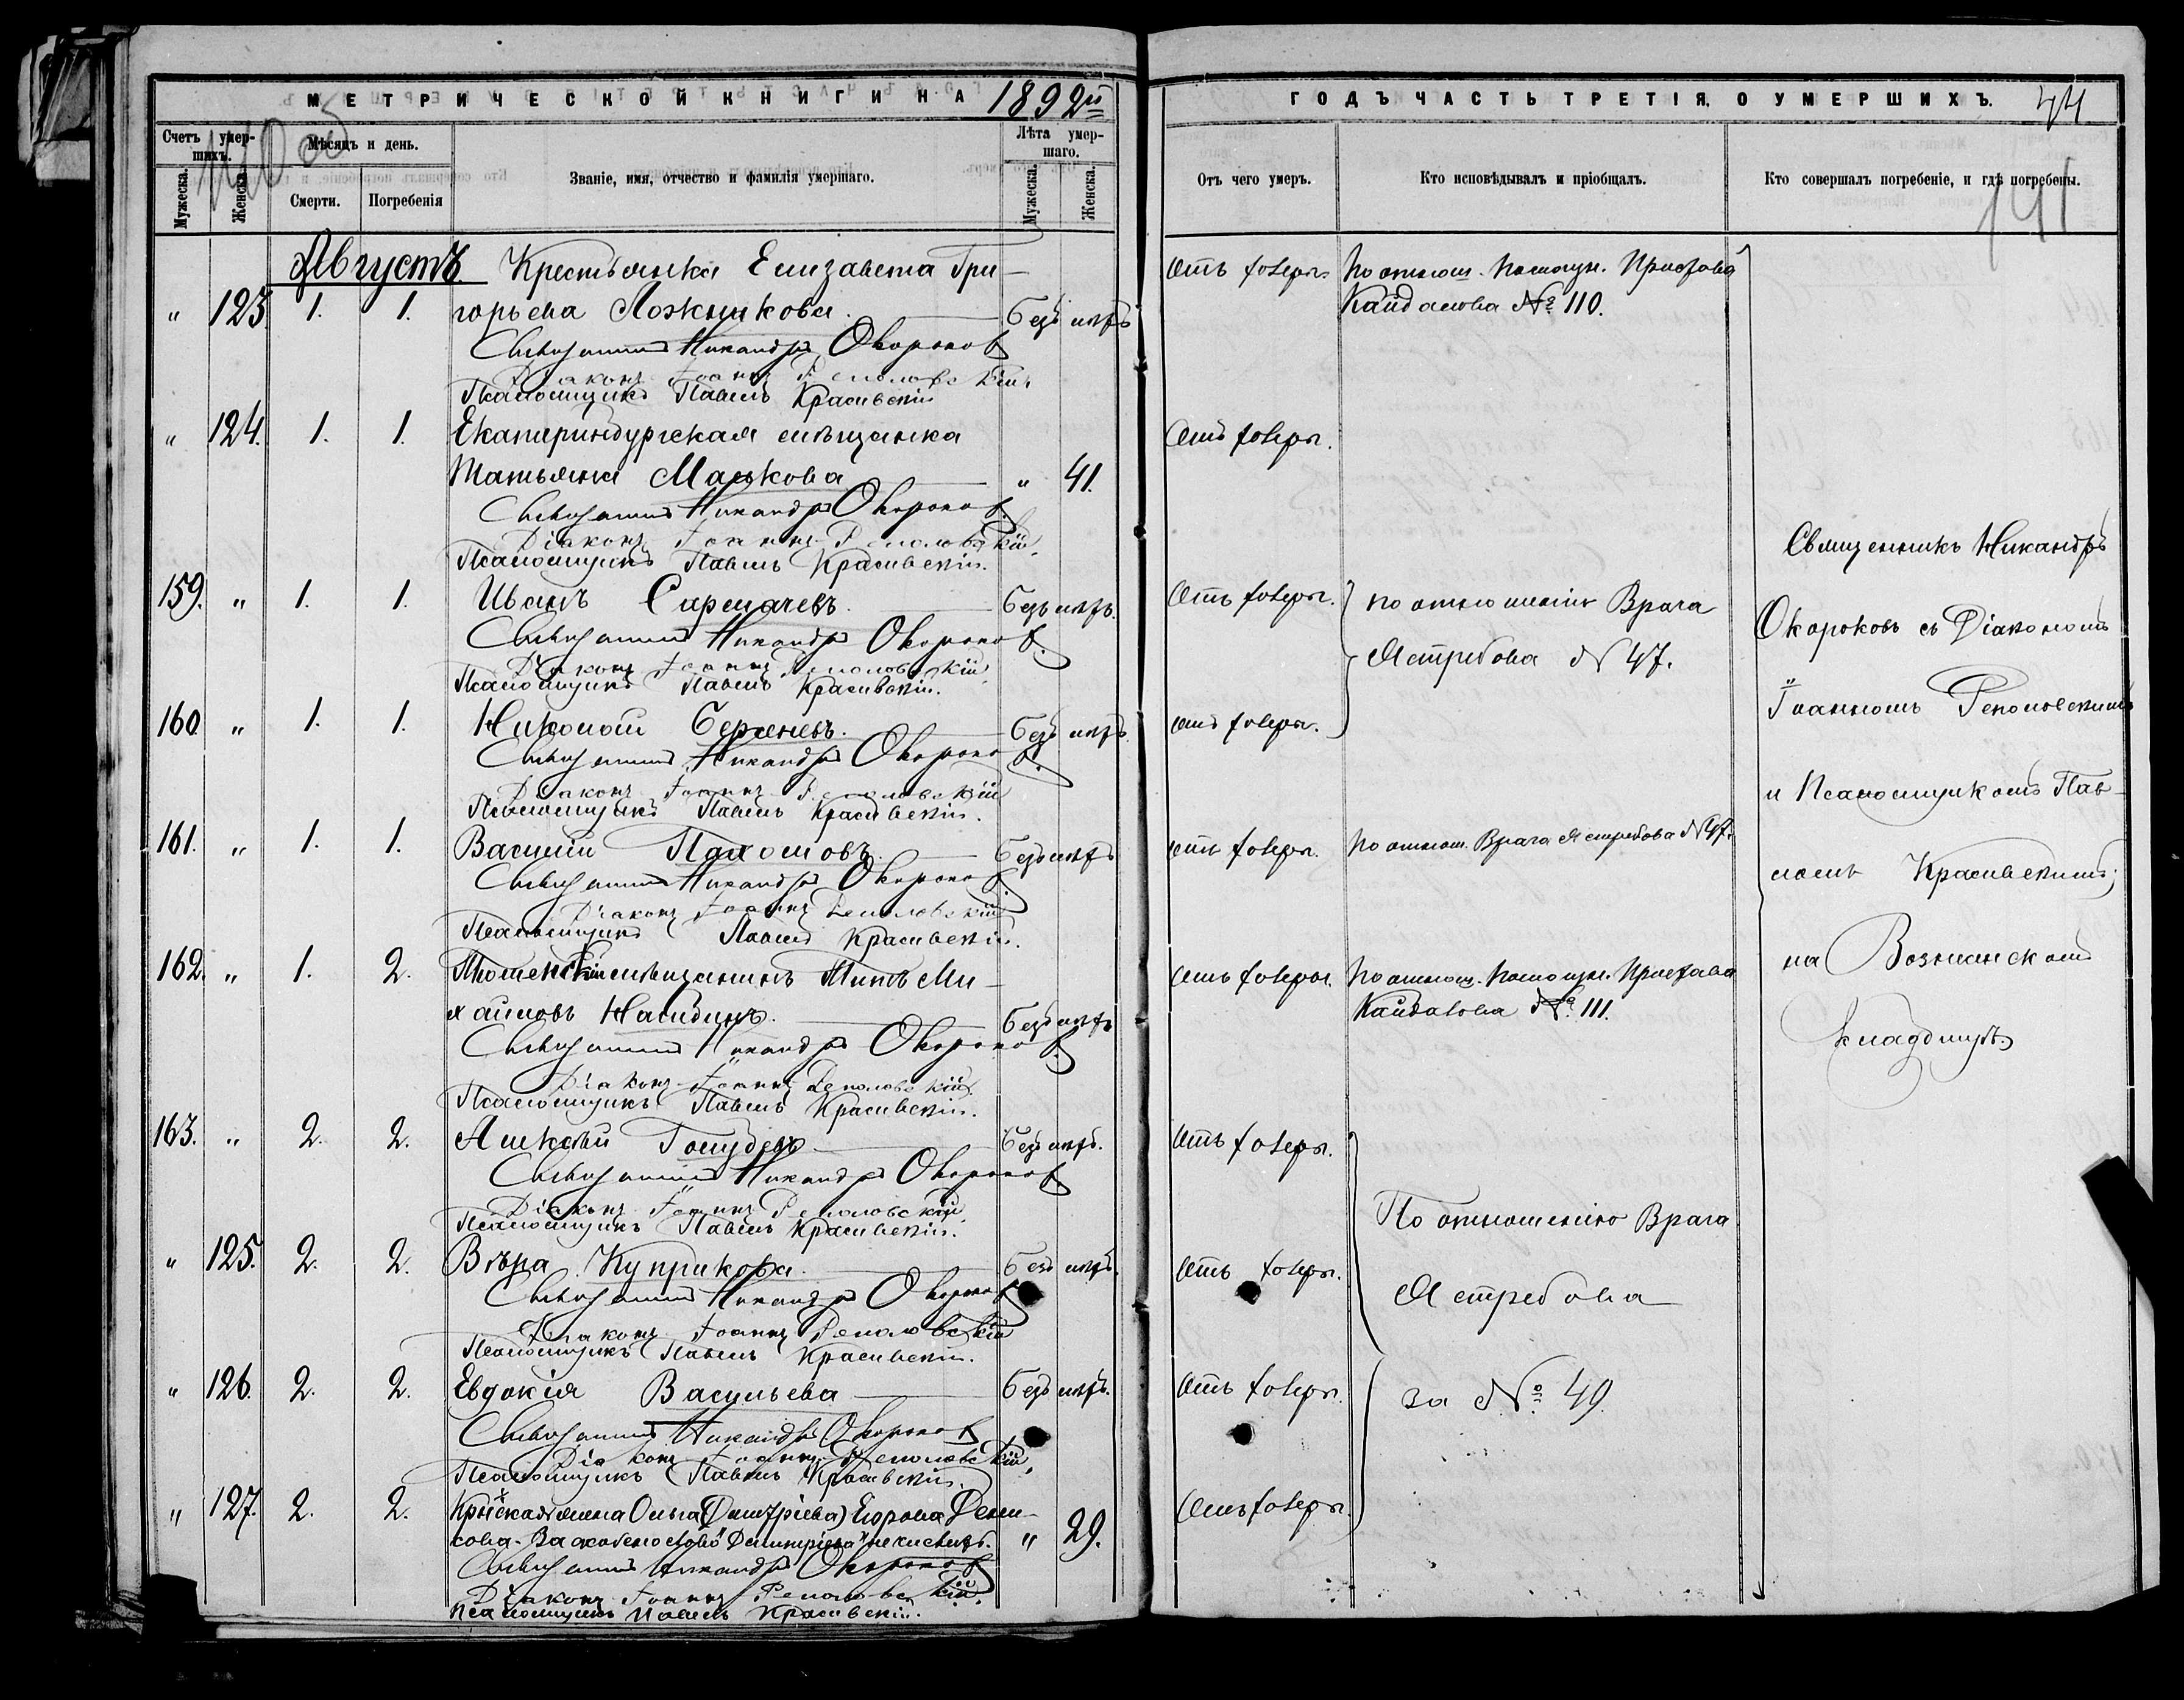 МЕТРИЧЕСКОЙ КНИГИ НА 1892й
Счетъ умер-
шихъ.
Мужеска.
Женска.
Мѣсяцъ и день.
Смерти.
Погребенія
Званіе, имя, отчество и фамилія умершаго.
Лѣта умер-
шаго.
Мужеска.
Женска.
Августъ. Крестьянка Елизавета Гри-
" 123. 1. 1. горьева Ложникова. Безъ мѣтр
Священникъ Никандръ Окороков
Діаконъ Іоаннъ Реполовскій
Псаломщикъ Павелъ Красивскій
" 124. 1. 1. Екатеринбургская мѣщанка
Татьяна Малькова " 41.
Священникъ Никандръ Окороков.
Діаконъ Іоаннъ Реполовскій.
Псаломщикъ Павелъ Красивскій.
159. " 1. 1. Иванъ Сармачевъ. Безъ мѣтр.
Священникъ Никандръ Окороков.
Діаконъ Іоаннъ Реполовскій.
Псаломщикъ Павелъ Красивскій.
160 " 1. 1. Николай Безъ мѣтр.
Священникъ Никандръ Окороков.
Діаконъ Іоаннъ Реполовскій
Псаломщикъ Павелъ Красивскій.
161. " 1. 1. Василій Пахомовъ. Безъ мѣтр
Священникъ Никандръ Окороков.
Діаконъ Іоаннъ Реполовскій
Псаломщикъ Павелъ Красивскій.
162. " 1. 2. Тюменскій мѣщанинъ Титъ Ми-
хайловъ Безъ мѣтр
Священникъ Никандръ Окороков.
Діаконъ Іоаннъ Реполовскій.
Псаломщикъ Павелъ Красивскій.
163. " 2. 2. Алексѣй Голубевъ Безъ мѣтр.
Священникъ Никандръ Окороков.
Діаконъ Іоаннъ Реполовскій.
Псаломщикъ Павелъ Красивскій.
" 125. 2. 2. Вѣра Куприкова. Безъ мѣтр.
Священникъ Никандръ Окороков
Діаконъ Іоаннъ Реполовскій
Псаломщикъ Павелъ Красивскій.
" 126. 2. 2. Евдокія Васильева Безъ мѣтр.
Священникъ Никандръ Окороков
Діаконъ Іоаннъ Реполовскій.
Псаломщикъ Павелъ Красивскій.
" 127. 2. 2. жена Ольга (Дмитріева) Егорова
" 29.
Священникъ Никандръ Окороков
Діаконъ Іоаннъ Реполовскій.
Псаломщикъ Павелъ Красивскій.
ГОДЪ ЧАСТЬ ТРЕТІЯ, О УМЕРШИХЪ.
Отъ чего умеръ.
Кто исповѣдывалъ и пріобщалъ.
Кто совершалъ погребеніе, и гдѣ погребены.
141
Отъ холеры. По отнош. Помощн. Пристава
Кайдалова № 110.
Отъ холеры.
Отъ холеры. по отношенію Врача
Ястребова № 47.
отъ холеры.
отъ холеры. По отнош. Врача Ястребова № 47.
Отъ холеры. По отнош. Помощн. Пристава
Кайдалова № 111.
Отъ холеры.
По отношенію Врача
Отъ холеры.
Ястребова
Отъ холеры. за № 49.
Отъ холеры
Священникъ Никандръ
Окороковъ съ Діакономъ
Іоанномъ Реполовскимъ
и Псаломщикомъ Пав-
ломъ Красивскимъ;
на Вознинскомъ
кладбищѣ.